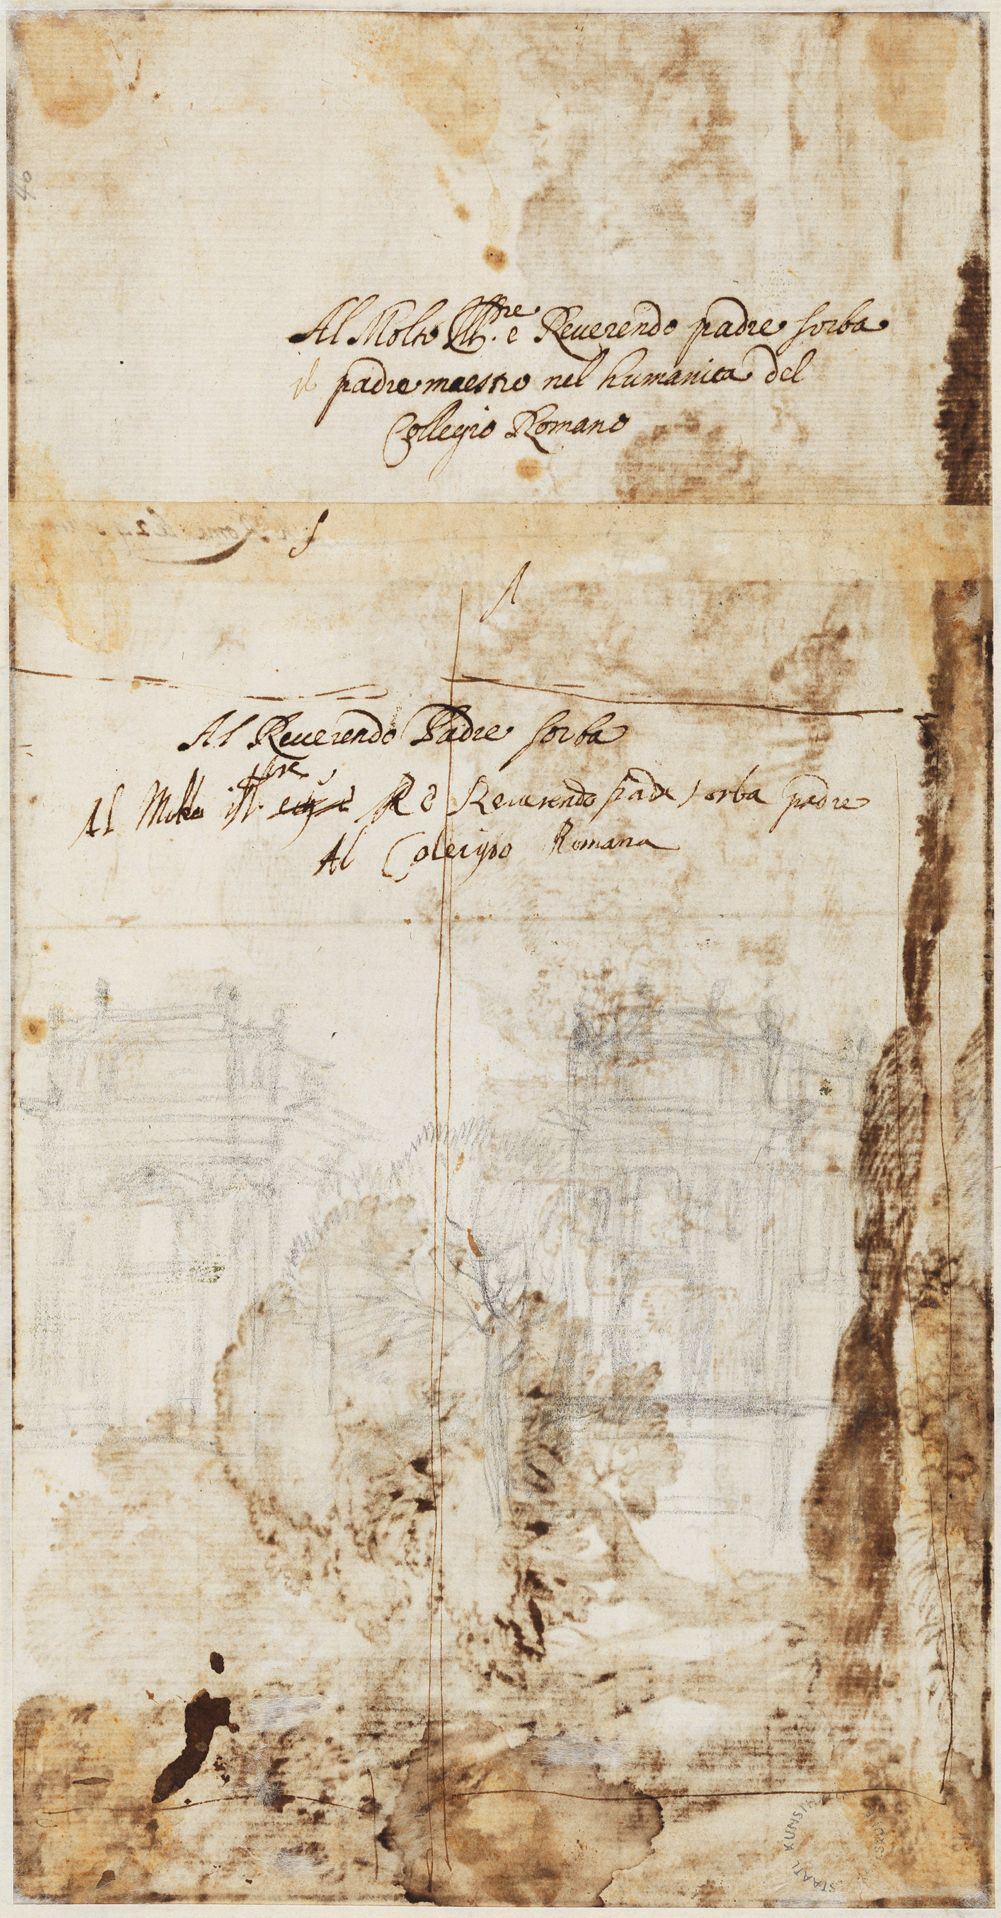 40
Al Molto Ill.re e Reuerendo padre sorba
il padre maestro nel humanita del
Collegio Romano
Al Reuerendo Padre sorba
Al Molto Ill.re R e Reuerendo pade sorba padre
Al Colegyo Romana
STAATL KUNST